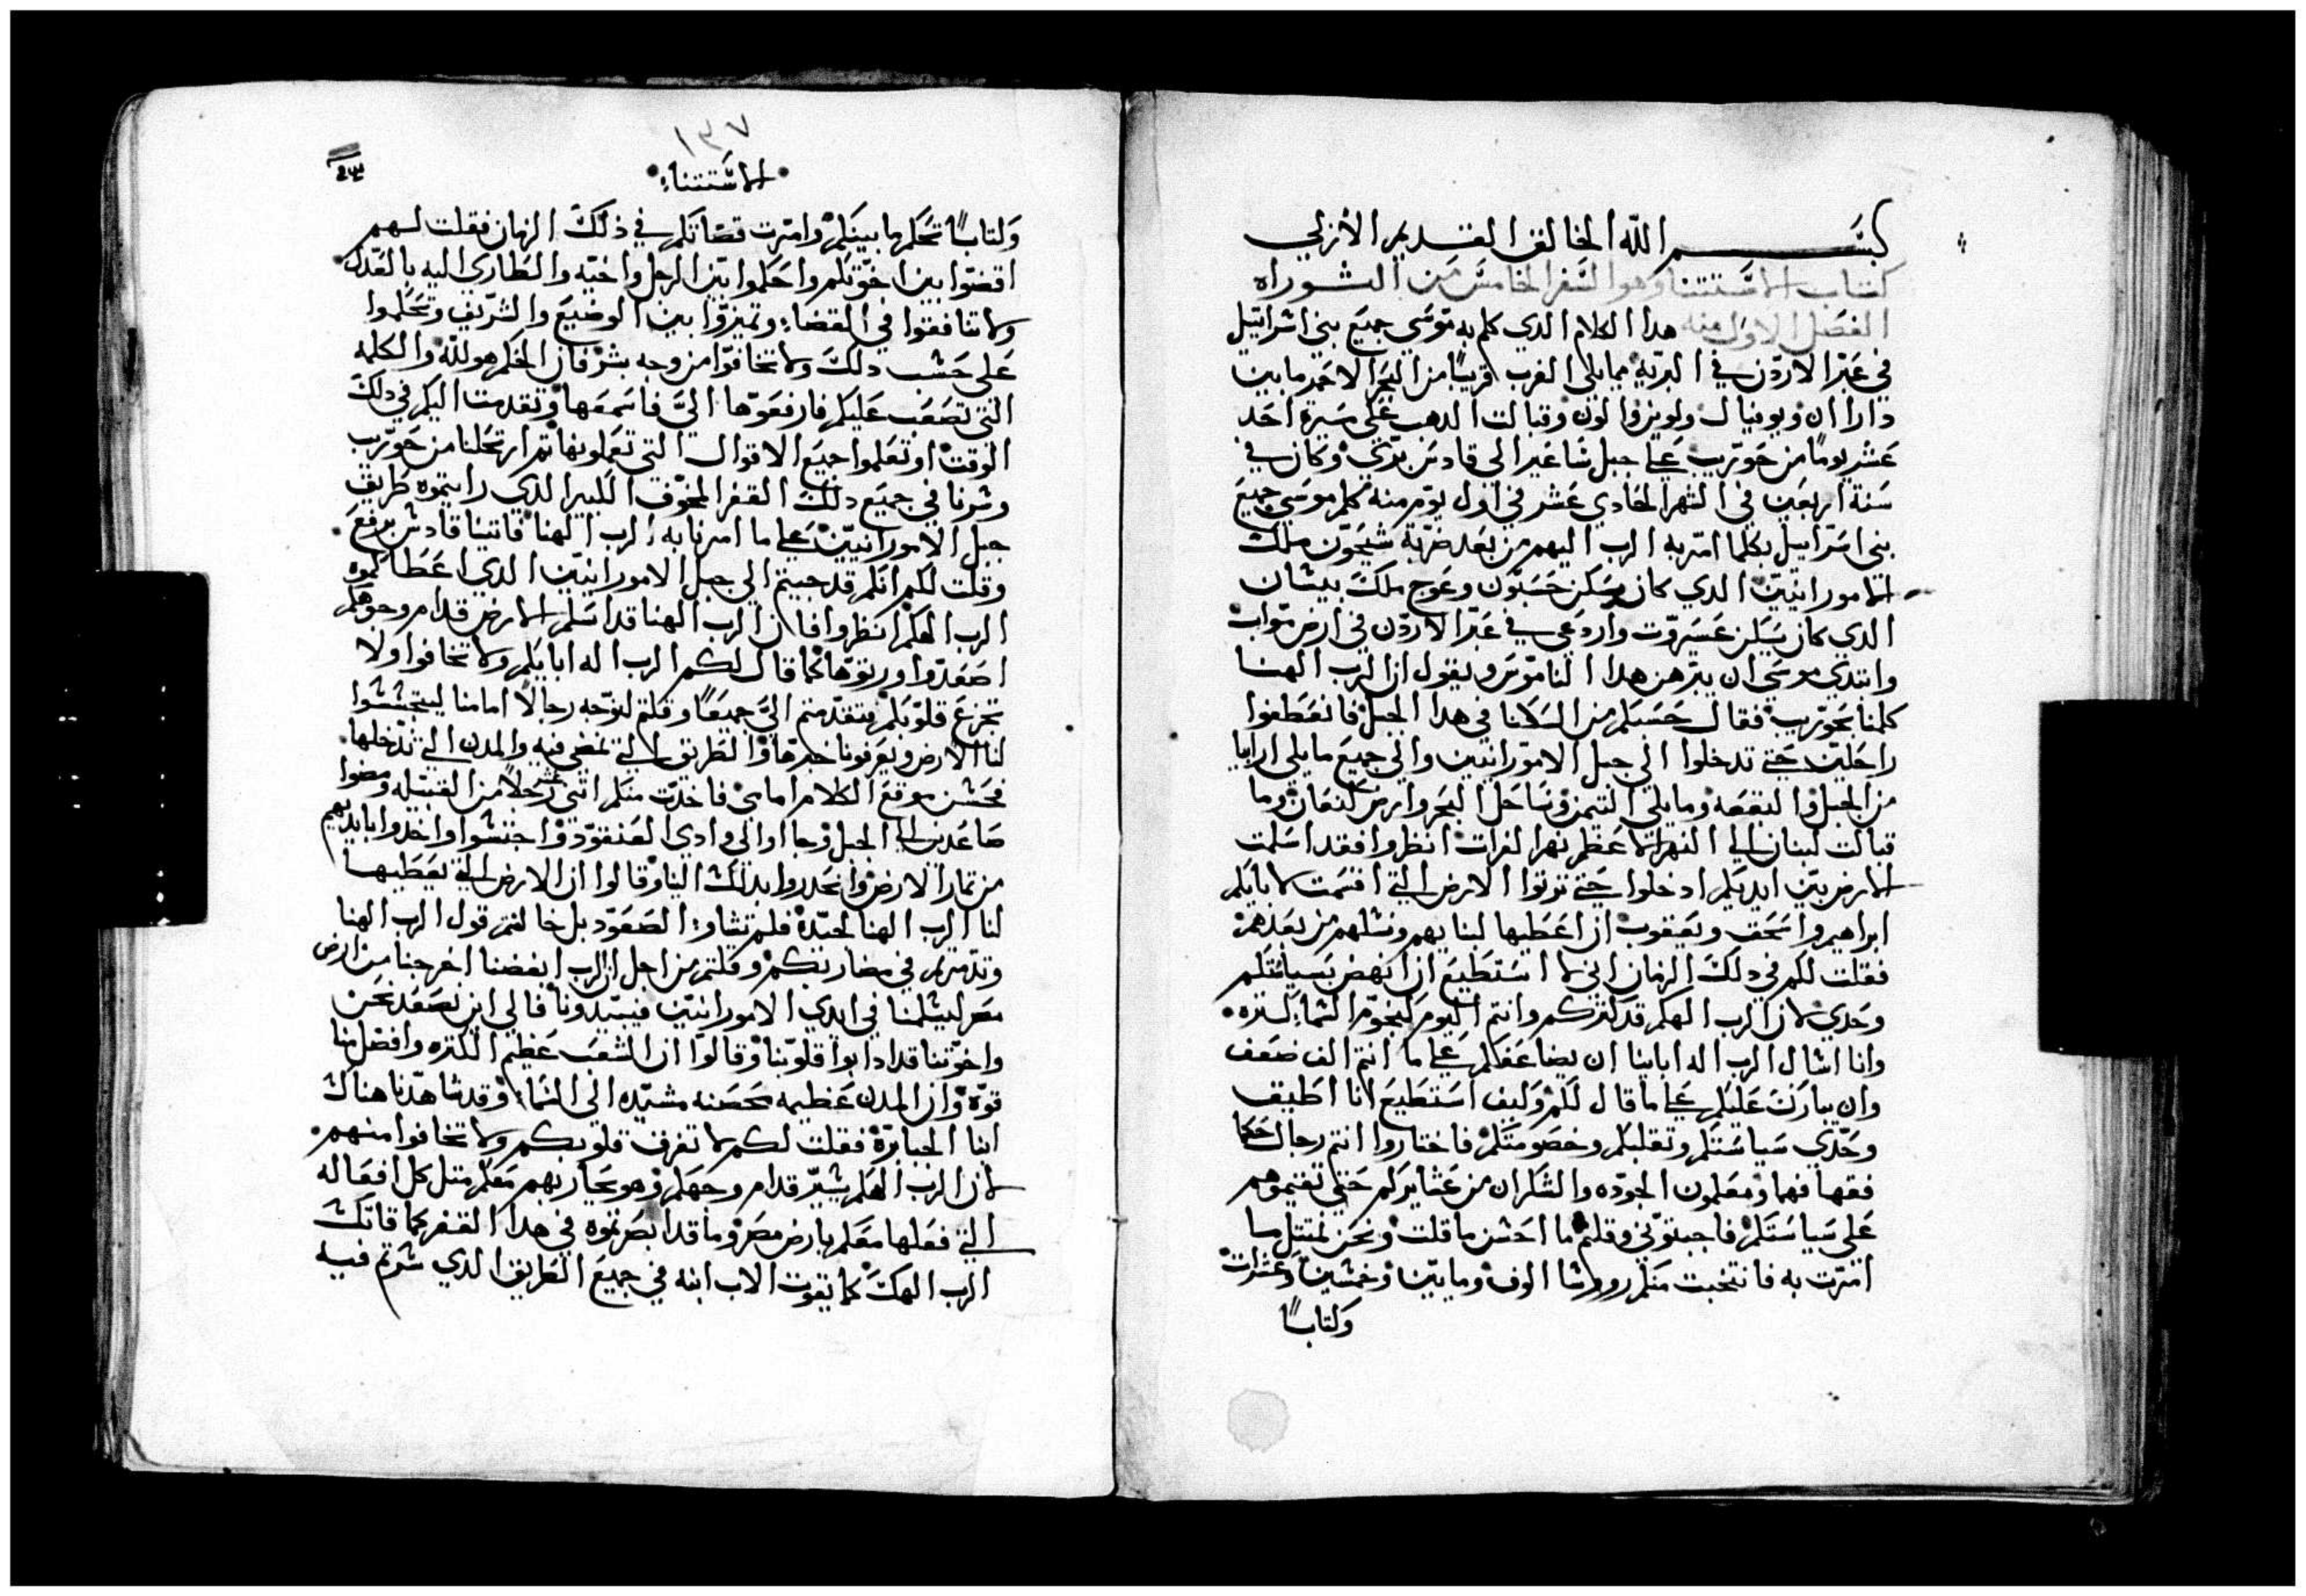 بسم الله الخالق القديم الأزلي
كتاب الاستتنا وهو السفر الخامس من التوراه
الفصل الاول منه هدا الكلام الدي كلم به موسى جميع بني اسراييل
في عبر الاردن في البريه مما يلي الغرب قريبًا من البحر الاحمر ما بين
داراان وبوفيال ولوبن والون وقبالت الدهب على مسيرة احد
عشر يومًا من حوريب على جبل ساغير الى قادس برني وكان في
سنة اربعين في الشهر الحادي عشر في اول يوم منه كلم موسى جميع
بني اسراييل بكلما امر به الرب اليهم من بعد ضربة سيحون ملك
الامورانيين الدي كان يسكن حسبون وعوج ملك بيشان
الدي كان يسكن عسروت واردعي في عبر الاردن في ارض مواب
وابتدي موسى ان يبرهن هدا الناموس ويقول ان الرب الهنا
كلمنا بحوريب فقال حسبكم من السكنا في هدا الجبل فانعطفوا
راحلين حتى تدخلوا الى جبل الامورانيين والى جميع ما يلي ارابيا
من الجبل والبقعه وما يلي التيمن وساحل البحر وارض كنعان وما
قبالت لبنان الى النهر الاعظم نهر الفرات انظروا فقد اسلمت
الارض بين ايديكم ادخلوا حتى توتوا الارض التي اقسمت لابايكم
ابراهيم واسحق ويعقوب ان اعطيها لبنايهم ونسلهم من بعدهم
فقلت لكم في دلك الزمان اني لا استطيع ان انهض بسياستكم
وحدي لان الرب الهكم قد كتركم وانتم اليوم كنجوم السماء كتره
وانا اسال الرب اله اباينا ان يضاعفكم على ما انتم الف ضعف
وان يبارك عليكم على ما قال لكم وكيف استطيع انا اطيق
وحدي سياستكم وتقلبكم وخصومتكم فاختاروا انتم رجال حكما
فقها فهما ومعلمون الجوده والشكران من عشايركم حتى تقيموهم
على سياستكم فاجبتوني وقلتم ما احسن ما قلت ونحن نمتتل ما
امرت به فانتخبت منكم رووسا الوف ومايين وخمسين وعشرات
وكتابًا
١٣٧
الاستتناء
وكتابًا تحكم بها بينكم وامرت قضاتكم في ذلك الزمان فقلت لهم
اقضوا بين اخوتكم واحكموا بين الرجل واخيه والطاري اليه بالعدل
ولا تنافقوا في القضاء وتميزوا بين الوضيع والشريف وتحكموا
على حسب دلك ولا تخافوا من وجه بشر فان الحكم هو لله والكلمه
التي تصعب عليكم فارفعوها اليَّ فاسمعها وتقدمت اليكم في دلك
الوقت او تعلموا جميع الاقوال التي تعملونها تم ارتحلنا من حوريب
وسرنا في جميع دلك القفر المخوف الكبير الدي رايتموه طريق
جبل الامورانيين على ما امرنا به الرب الهنا فاتينا قادش برقع
وقلت لكم انكم قد جيتم الى جبل الامورانيين الدي اعطاكموه
الرب الهكم انظروا فان الرب الهنا قد اسلم الارض قدام وجوهكم
اصعدوا ورتوها كما قال لكم الرب اله ابايكم ولا تخافوا ولا
تجزع قلوبكم فتقدمتم اليَّ جميعًا وقلتم لنوجه رجالًا امامنا ليتجسسوا
لنا الارض ويعرفونا خبرها والطريق التي نمضي فيه والمدن التي ندخلها
فحسن موقع الكلام امامي فاخدت منكم اتنى عشر رجلًا من القبيله ومضوا
صاعدين الى الجبل وجااوا الى وادي العنقود واجتسوا واخدوا بايديهم
من تمار الارض وانحدروا بدلك الينا وقالوا ان الارض التي يعطيها
لنا الرب الهنا لجيدة فلم تشاء الصعود بل خالفتم قول الرب الهنا
وتدمرتم في مضاربكم وقلتم من اجل ان الرب ابغضنا اخرجنا من ارض
مصر ليسلمنا في ايدي الامورانيين فيبيدونا فالى اين نصعد نحن
واخوتنا قد ادابوا قلوبنا وقالوا ان الشعب عظيم الكتره وافضل منا
قوة وان المدن عظيمه محصنه مشيده الى السماء وقد شاهدنا هناك
ابنا الجبابرة فقلت لكم لا تفرق قلوبكم ولا تخافوا منهم
لان الرب الهكم يسير قدام وجهكم وهو يحاربهم معكم متل كل افعاله
التي فعلها معكم بارض مصر وما قد ابصرتموه في هدا القفر كما قاتك
الرب الهك كما يقوت الاب ابنه في جميع الطريق الدي سرتم فيه